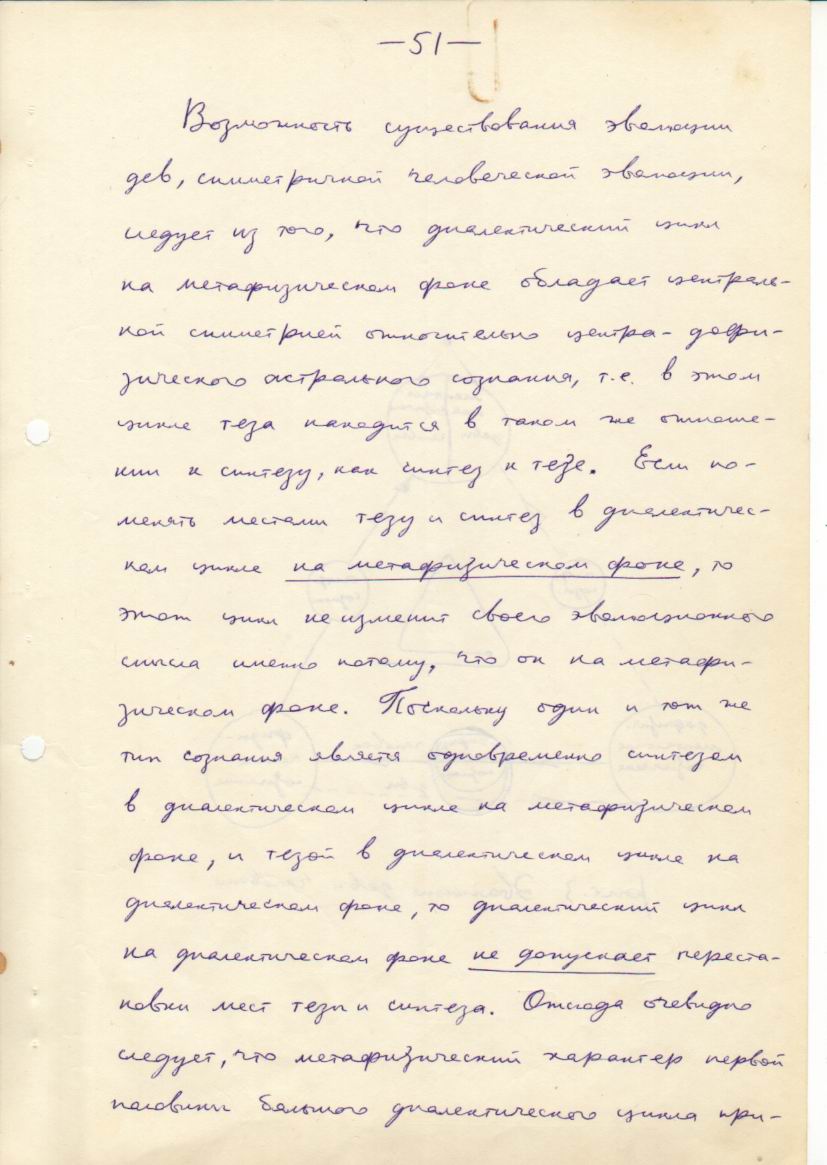 —51—
Возможность существования эволюции
дев, симметричной человеческой эволюции,
следует из того, что диалектический цикл
на метафизическом фоне обладает централь-
ной симметрией относительно центра – дофи-
зического астрального сознания, т.е. в этом
цикле теза находится в таком же отноше-
нии к синтезу, как синтез к тезе. Если по-
менять местами тезу и синтез в диалектичес-
ком цикле на метафизическом фоне, то
этот цикл не изменит своего эволюционного
смысла именно потому, что он на метафи-
зическом фоне. Поскольку один и тот же
тип сознания является одновременно синтезом
в диалектическом цикле на метафизическом
фоне, и тезой в диалектическом цикле на
диалектическом фоне, то диалектический цикл
на диалектическом фоне не допускает переста-
новки мест тезы и синтеза. Отсюда очевидно
следует, что метафизический характер первой
половины большого диалектического цикла при-